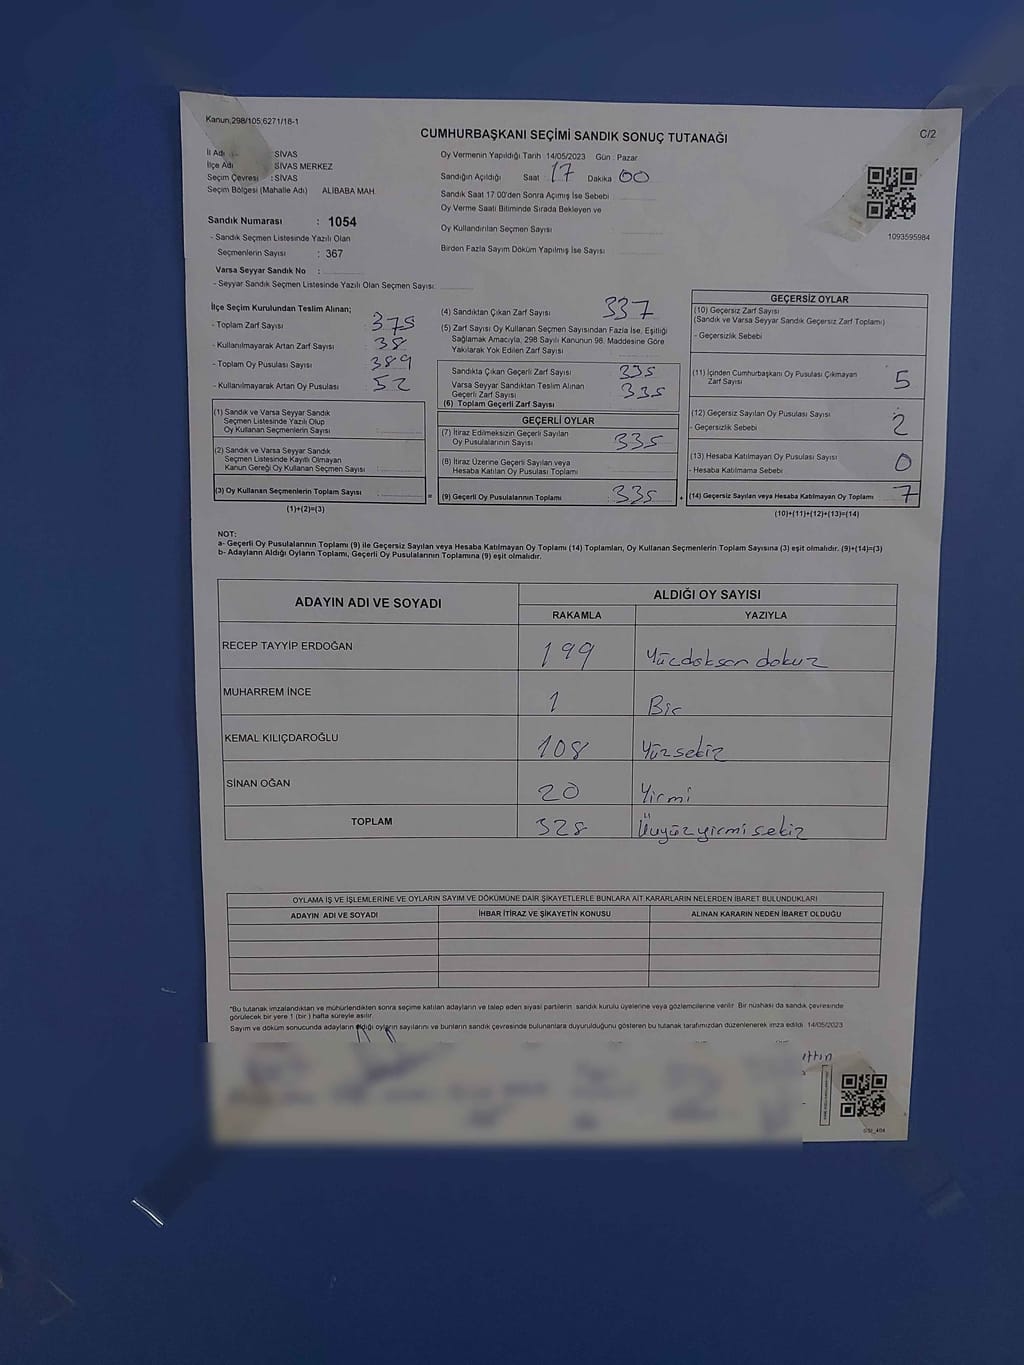 Kanun,298/105,6271/18-1
CUMHURBAŞKANI SEÇİMİ SANDIK SONUÇ TUTANAĞI
C/2
İl Adı : SİVAS
İlçe Adı : SİVAS MERKEZ
Seçim Çevresi : SİVAS
Seçim Bölgesi (Mahalle Adı) ALİBABA MAH.
Oy Vermenin Yapıldığı Tarih :14/05/2023 Gün : Pazar
Sandığın Açıldığı Saat : 17 Dakika 00
Sandık Saat 17:00'den Sonra Açımış İse Sebebi
Oy Verme Saati Bitiminde Sırada Bekleyen ve
Oy Kullandırılan Seçmen Sayısı
Birden Fazla Sayım Döküm Yapılmış İse Sayısı
1093595984
Sandık Numarası : 1054
- Sandık Seçmen Listesinde Yazılı Olan
Seçmenlerin Sayısı : 367
Varsa Seyyar Sandık No :
- Seyyar Sandık Seçmen Listesinde Yazılı Olan Seçmen Sayısı:
İlçe Seçim Kurulundan Teslim Alınan;
- Toplam Zarf Sayısı : 375
- Kullanılmayarak Artan Zarf Sayısı : 38
- Toplam Oy Pusulası Sayısı : 389
- Kullanılmayarak Artan Oy Pusulası : 52
(1) Sandık ve Varsa Seyyar Sandık
Seçmen Listesinde Yazılı Olup
Oy Kullanan Seçmenlerin Sayısı :
(2) Sandık ve Varsa Seyyar Sandık
Seçmen Listesinde Kayıtlı Olmayan
Kanun Gereği Oy Kullanan Seçmen Sayısı :
(3) Oy Kullanan Seçmenlerin Toplam Sayısı : =
(1)+(2)=(3)
(4) Sandıktan Çıkan Zarf Sayısı : 337
(5) Zarf Sayısı Oy Kullanan Seçmen Sayısından Fazla İse, Eşitliği
Sağlamak Amacıyla, 298 Sayılı Kanunun 98. Maddesine Göre
Yakılarak Yok Edilen Zarf Sayısı :
Sandıkta Çıkan Geçerli Zarf Sayısı : 335
Varsa Seyyar Sandıktan Teslim Alınan
Geçerli Zarf Sayısı : 335
(6) Toplam Geçerli Zarf Sayısı
GEÇERLİ OYLAR
(7) İtiraz Edilmeksizin Geçerli Sayılan
Oy Pusulalarının Sayısı : 335
(8) İtiraz Üzerine Geçerli Sayılan veya
Hesaba Katılan Oy Pusulası Toplamı :
(9) Geçerli Oy Pusulalarının Toplamı : 335 +
GEÇERSİZ OYLAR
(10) Geçersiz Zarf Sayısı
(Sandık ve Varsa Seyyar Sandık Geçersiz Zarf Toplamı)
- Geçersizlik Sebebi
(11) İçinden Cumhurbaşkanı Oy Pusulası Çıkmayan
Zarf Sayısı 5
(12) Geçersiz Sayılan Oy Pusulası Sayısı
- Geçersizlik Sebebi 2
(13) Hesaba Katılmayan Oy Pusulası Sayısı
- Hesaba Katılmama Sebebi 0
(14) Geçersiz Sayılan veya Hesaba Katılmayan Oy Toplamı : 7
(10)+(11)+(12)+(13)=(14)
NOT:
a- Geçerli Oy Pusulalarının Toplamı (9) ile Geçersiz Sayılan veya Hesaba Katılmayan Oy Toplamı (14) Toplamları, Oy Kullanan Seçmenlerin Toplam Sayısına (3) eşit olmalıdır. (9)+(14)=(3)
b- Adayların Aldığı Oyların Toplamı, Geçerli Oy Pusulalarının Toplamına (9) eşit olmalıdır.
ADAYIN ADI VE SOYADI
ALDIĞI OY SAYISI
RAKAMLA YAZIYLA
RECEP TAYYİP ERDOĞAN 199 Yüzdoksan dokuz
MUHARREM İNCE 1 Bir
KEMAL KILIÇDAROĞLU 108 Yüzsekiz
SİNAN OĞAN 20 Yirmi
TOPLAM 328 Üçyüzyirmi sekiz
OYLAMA İŞ VE İŞLEMLERİNE VE OYLARIN SAYIM VE DÖKÜMÜNE DAİR ŞİKAYETLERLE BUNLARA AİT KARARLARIN NELERDEN İBARET BULUNDUKLARI
ADAYIN ADI VE SOYADI İHBAR İTİRAZ VE ŞİKAYETİN KONUSU ALINAN KARARIN NEDEN İBARET OLDUĞU
"Bu tutanak imzalandıktan ve mühürlendikten sonra seçime katılan adayların ve talep eden siyasi partilerin sandık kurulu üyelerine veya gözlemcilerine verilir. Bir nüshası da sandık çevresinde
görülecek bir yere 1 (bir) hafta süreyle asılır.
Sayım ve döküm sonucunda adayların aldığı oyların sayılarını ve bunların sandık çevresinde bulunanlara duyurulduğunu gösteren bu tutanak tarafımızdan düzenlenerek imza edildi. 14/05/2023